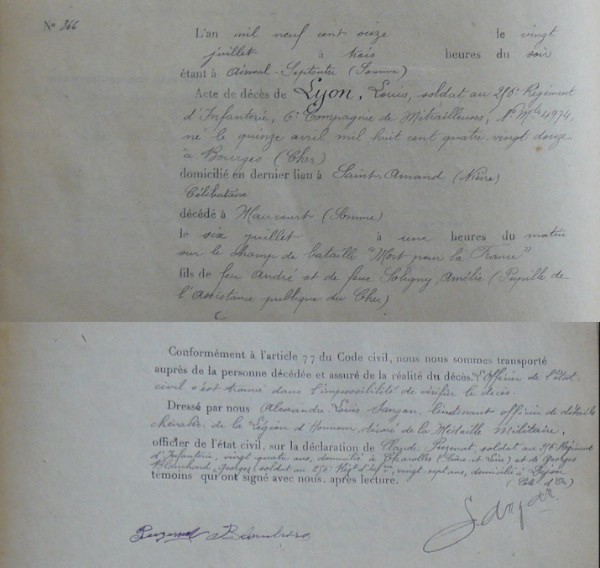 N° 366
L'an mil neuf cent seize le vingt
juillet à trois heures du soir
étant à Ainval-Septoutre (Somme)
Acte de décès de Lyon, Louis, soldat au Régiment
d'Infanterie, 6e Compagnie de Mitrailleuses, N° Mle 4974,
né le quinze avril mil huit cent quatre vingt douze
à Bourges (Cher)
domicilié en dernier lieu à Saint-Amand (Nièvre)
Célibataire
décédé à Maucourt (Somme)
le six juillet à une heures du matin
sur le champ de bataille "Mort pour la France"
fils de feu André et de feue Soligny, Amélie (Pupille de
l'Assistance publique du Cher)
Conformément à l'article 77 du Code civil, nous nous sommes transporté
auprès de la personne décédée et assuré de la réalité du décès. L'Officier de l'état
civil s'est trouvé dans l'impossibilité de vérifier le décès.
Dressé par nous Alexandre Louis lieutenant officier de détails
chevalier de la Légion d'Honneur, décoré de la Médaille Militaire,
officier de l'état civil, sur la déclaration de soldat au Régiment
d'Infanterie, vingt quatre ans, domicilié à Charolles (Saône et Loire) et de Georges
Blanchard, Georges (soldat au Régt d'Infie, vingt sept ans, domicilié à Dijon
(Côte d'Or)
témoins qui ont signé avec nous, après lecture.